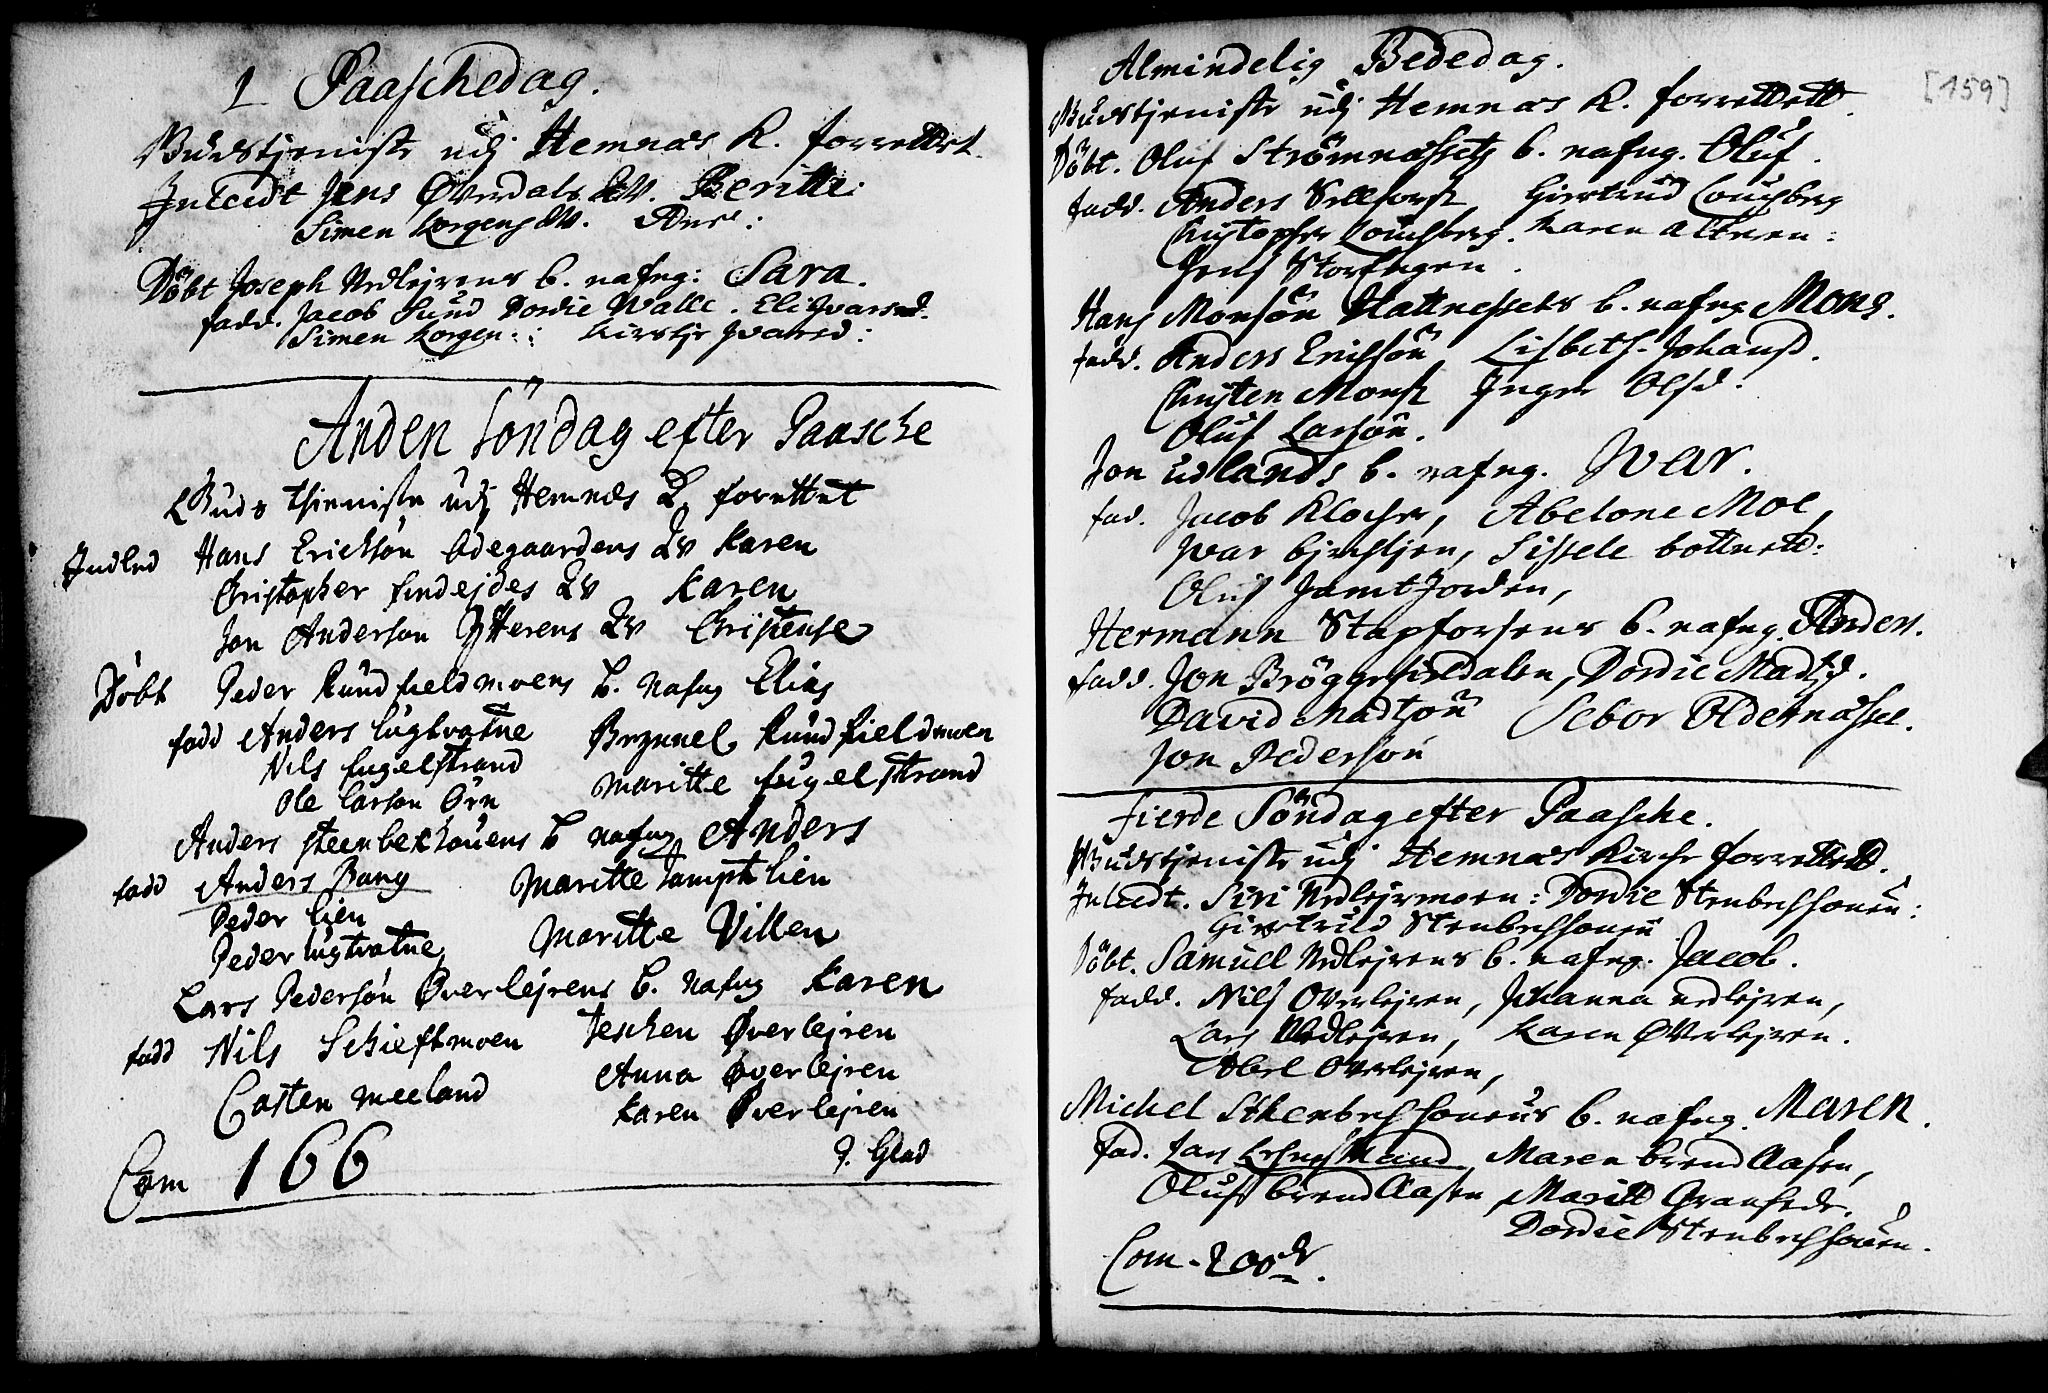 1 Paaschedag.
Gudstjeniste udj Hemnæs K. forrettet.
Inleedt Jens Øverdals Qv. Beritte.
Simen Korgens Qv. Ane:
Döbt Joseph Nedlejrens b. nafng: Sara.
fadd. Jacob Sund Dordie Walle. Eli Ivarsd.
Simen Korgen:: Kirstje Ivarsd:
Anden Söndag efter Paasche
Guds thieniste udj Hemnæs K. forettet
Indled Hans Erichsön Ödegaardens Qv Karen
Christopher Findejdes Qv Karen
Jon Anderson Ytterens Qv Christense
Döbt Peder Rundfieldmoens b. Nafng Elias
fadd Anders lugtvatne Brynnel Rundfieldmoen
Nils fugelstrand Maritte fugelstrand
Ole Larson Örn
Anders steenbekhouens b nafng Anders
fadd Anders Bang Maritte Jamptlien
Peder lien
Peder lugtvatne Maritte Villen
Lars Pedersön Øverlejrens b. Nafng Karen
fadd Nils Schieftmoen Jeschen Øverlejren
Casten Meeland Anna Øverlejren
Karen Øverlejren
Com 166 J. Glad
Almindelig Bededag.
[159]
Gudstjeniste udj Hemnæs K. forrettett.
Döbt. Oluf Strömnæssets b. nafng. Oluf.
fadd. Anders Villforst Giertrud Louchberg
Christopher Louchberg. Karen Alteren:
Jens Storengen.
Hans Monsön Hattnessets b. nafng. Mons.
fadd. Anders Erichsön Lisbeth Johansd.
Christen Mons Inger Olsd:
Oluf Larsön.
Jon udlands b. nafng. Ivar.
fad. Jacob Klocher, Abelone Moe,
Ivar bjerchjen, Sissele bottnett:
Oluf Jamtjorden,
Hermann Stapforsens b. nafng. Anders.
fadd. Jon Bröggefieldalen, Dordie Madtzd.
David Madtsön Sebor Oldernässet.
Jon Pedersön
Fierde Söndag efter Paasche.
Gudstjeniste udj Hemnæs Kirche forrettett.
Inleedt. Siri Nedlejrmoen: Dordie Stenbechhouen:
Giertrud Stenbechhouen
Döbt. Samuel Nedlejrens b. nafng. Jacob.
fadd. Nils Overlejren, Johanna Nedlejren,
Lars Nedlejren, Karen Øverlejren.
Abel Overlejren,
Michel Stenbechhouens b. nafng. Maren.
fad. Lars Mand, Maren brendAasen,
Oluf brendAasen, Maritt Granhede.
Dordie Stenbechhouen.
Com. 200de.